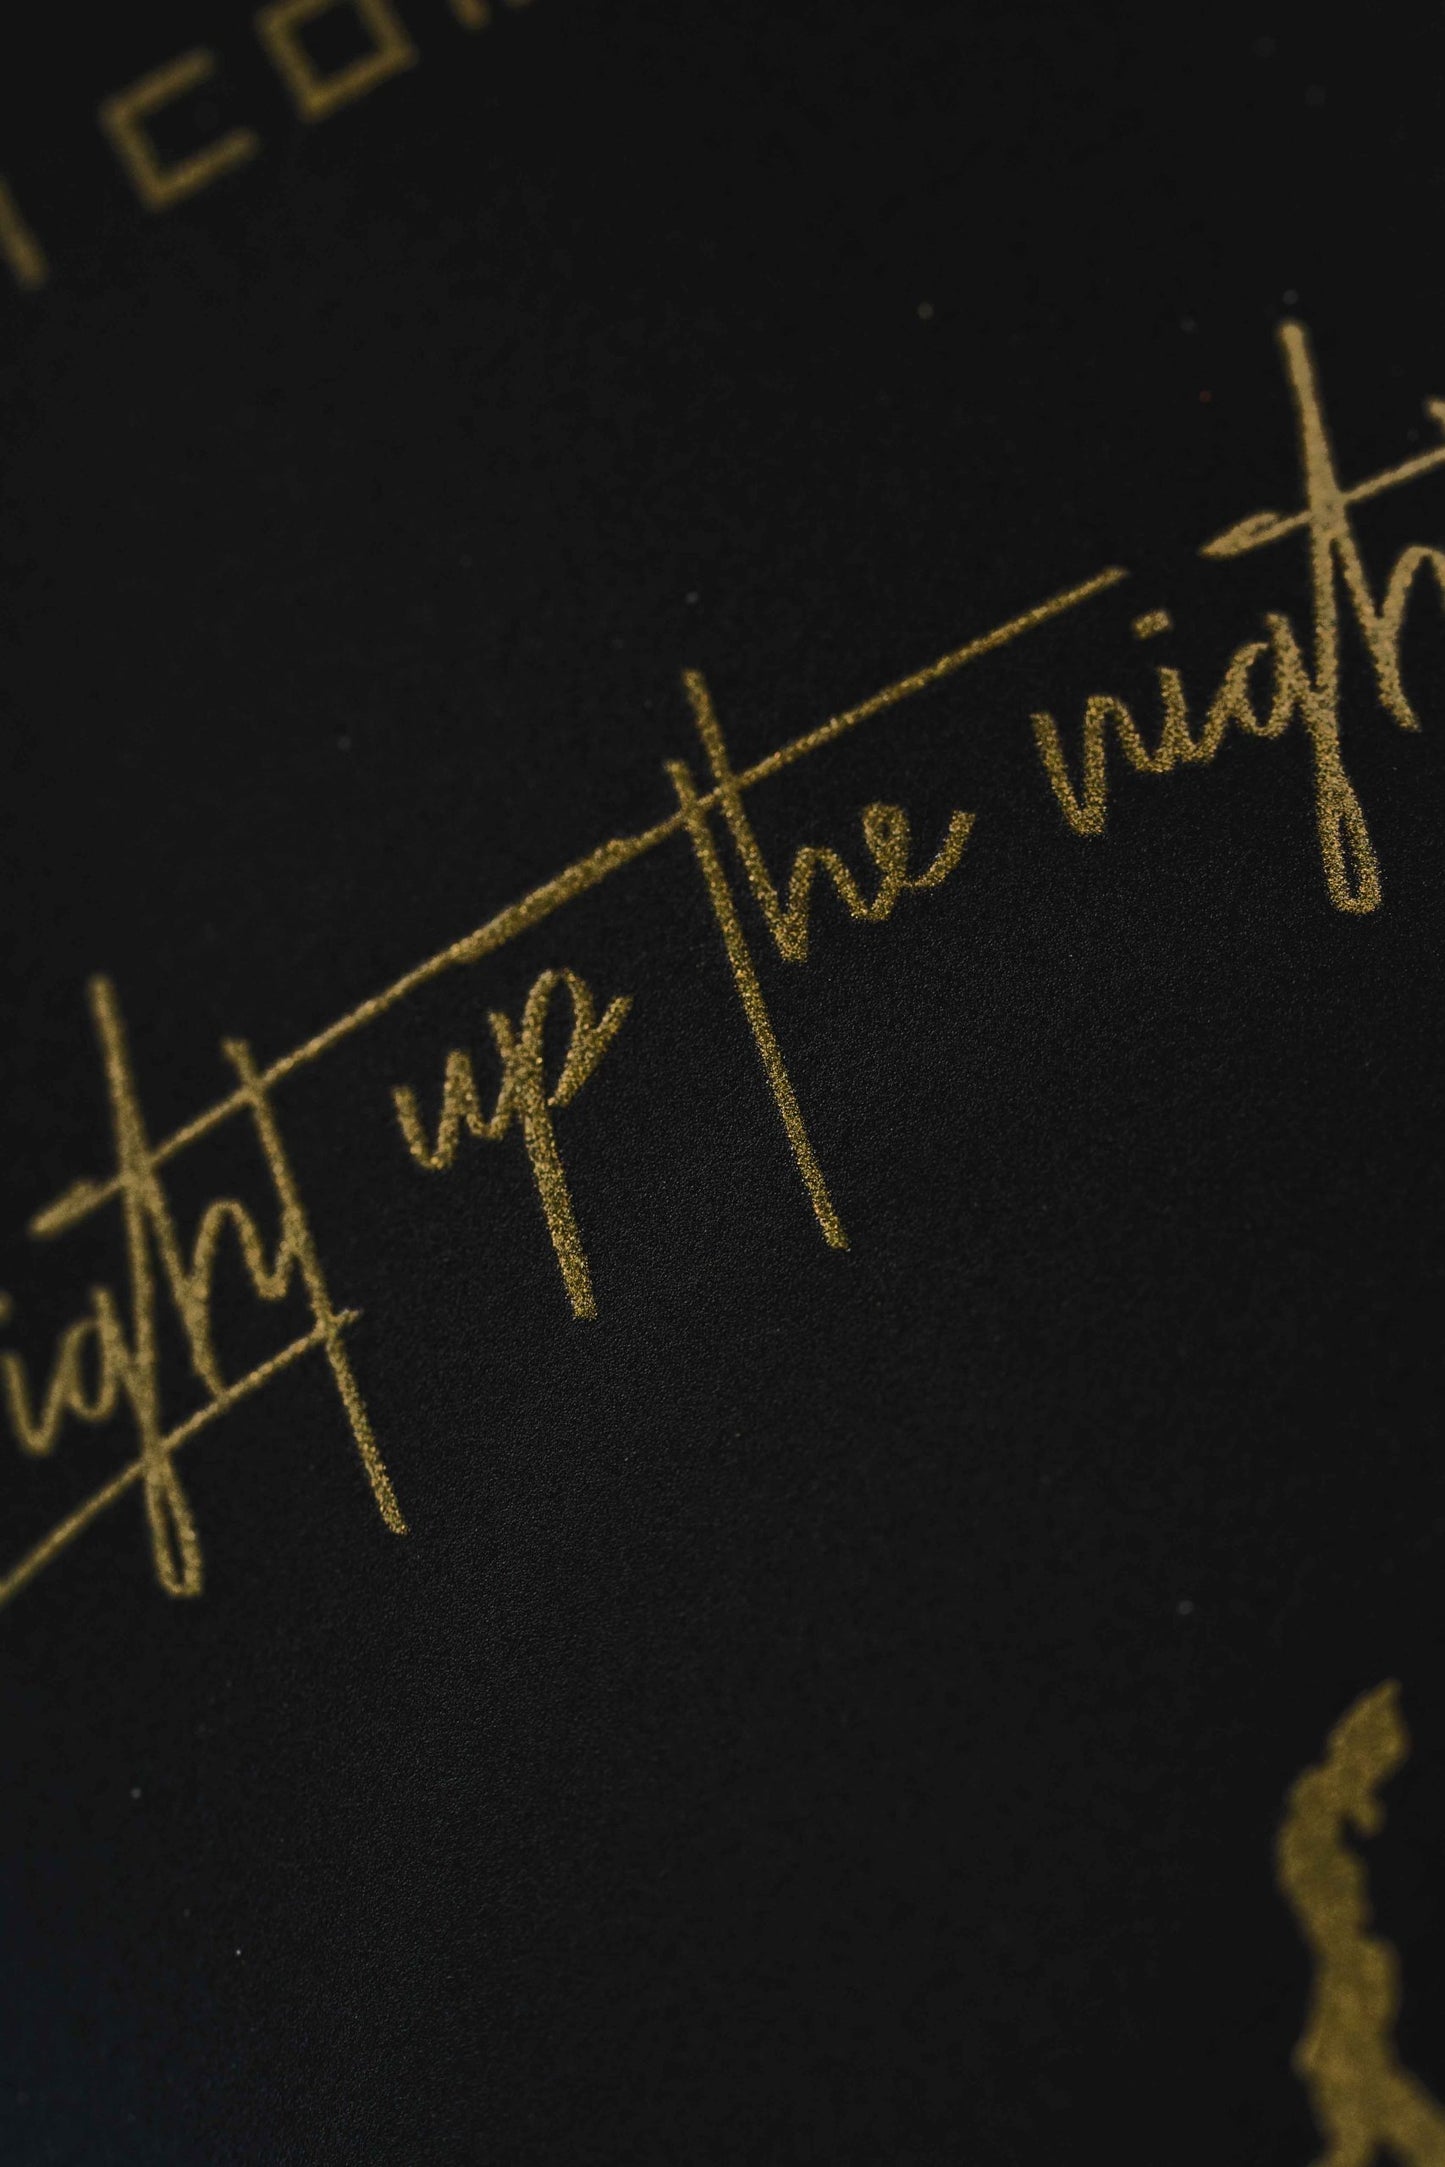 COM
ight up the night